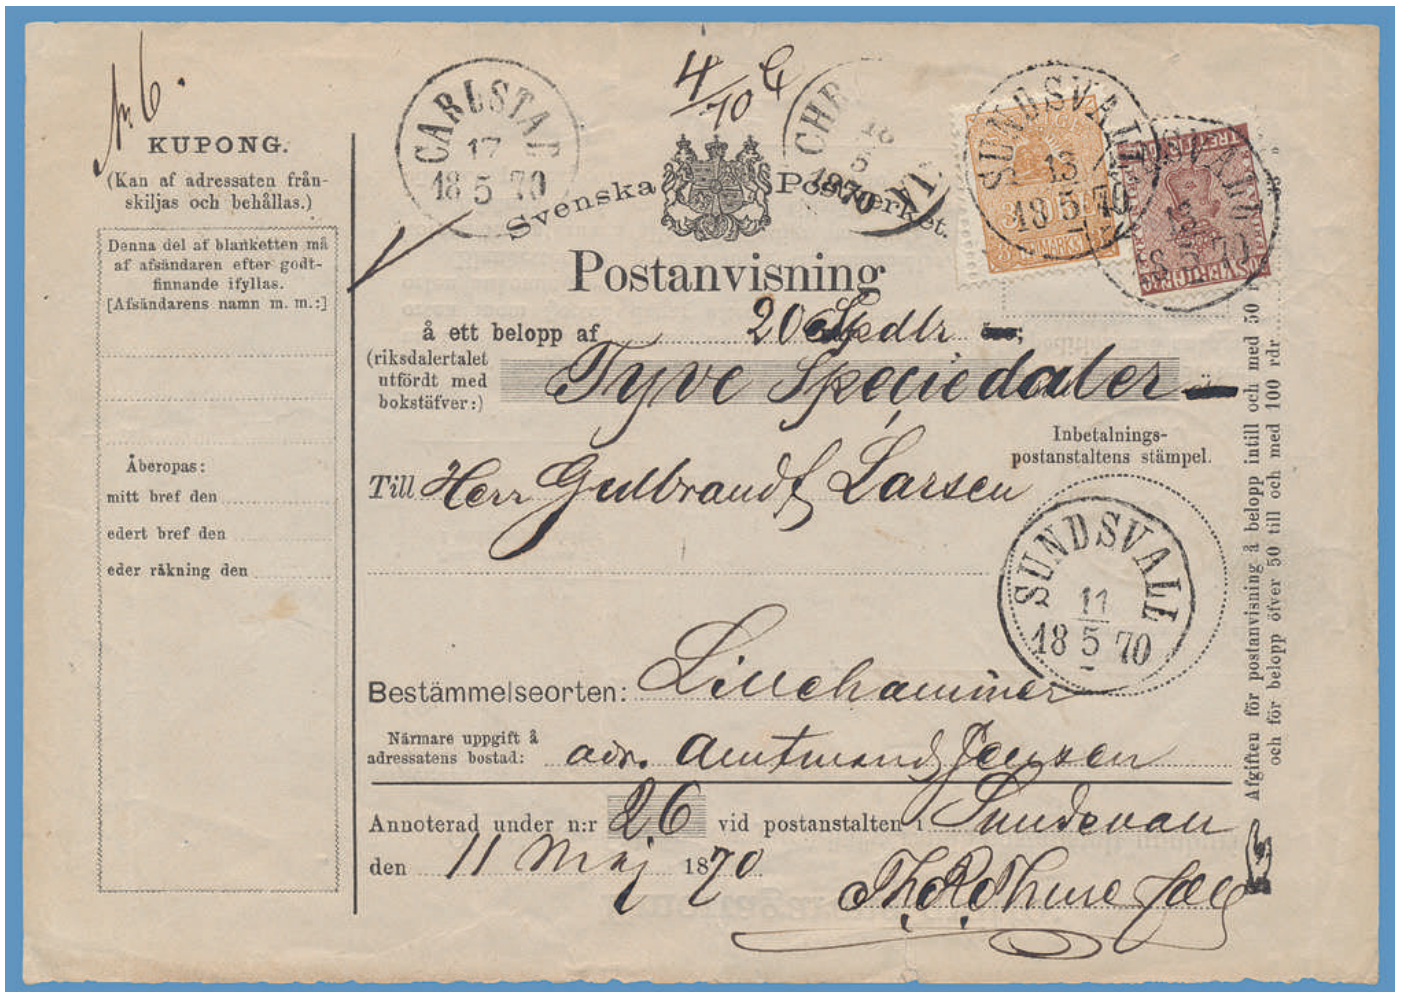 Nr. 6.
KUPONG.
(Kan af adressaten från-
skiljas och behållas.)
Denna del af blanketten må
af afsändaren efter godt-
finnande ifyllas.
[Afsändarens namn m. m.:]
Åberopas:
mitt bref den
edert bref den
eder räkning den
CARLSTAD
17
18 5 70
4/70
CHR
18
5
1870
IA
Svenska Postverket.
SUNDSVALL
13
18 5 70
SUNDSVALL
13
18 5 70
SVERIGE
Postanvisning
å ett belopp af 20 Spdlr
(riksdalertalet
utfördt med
bokstäfver:)
Tyve Speciedaler
Inbetalnings-
postanstaltens stämpel.
Till Herr Gulbrand Larsen
SUNDSVALL
11
18 5 70
Bestämmelseorten: Lillehammer
Närmare uppgift å
adressatens bostad:
adr. Amtmand Jensen
Annoterad under n:r 26 vid postanstalten i Sundsvall
den 11 Maj 1870
Afgiften för postanvisning å belopp intill och med 50
och för belopp öfver 50 till och med 100 rdr